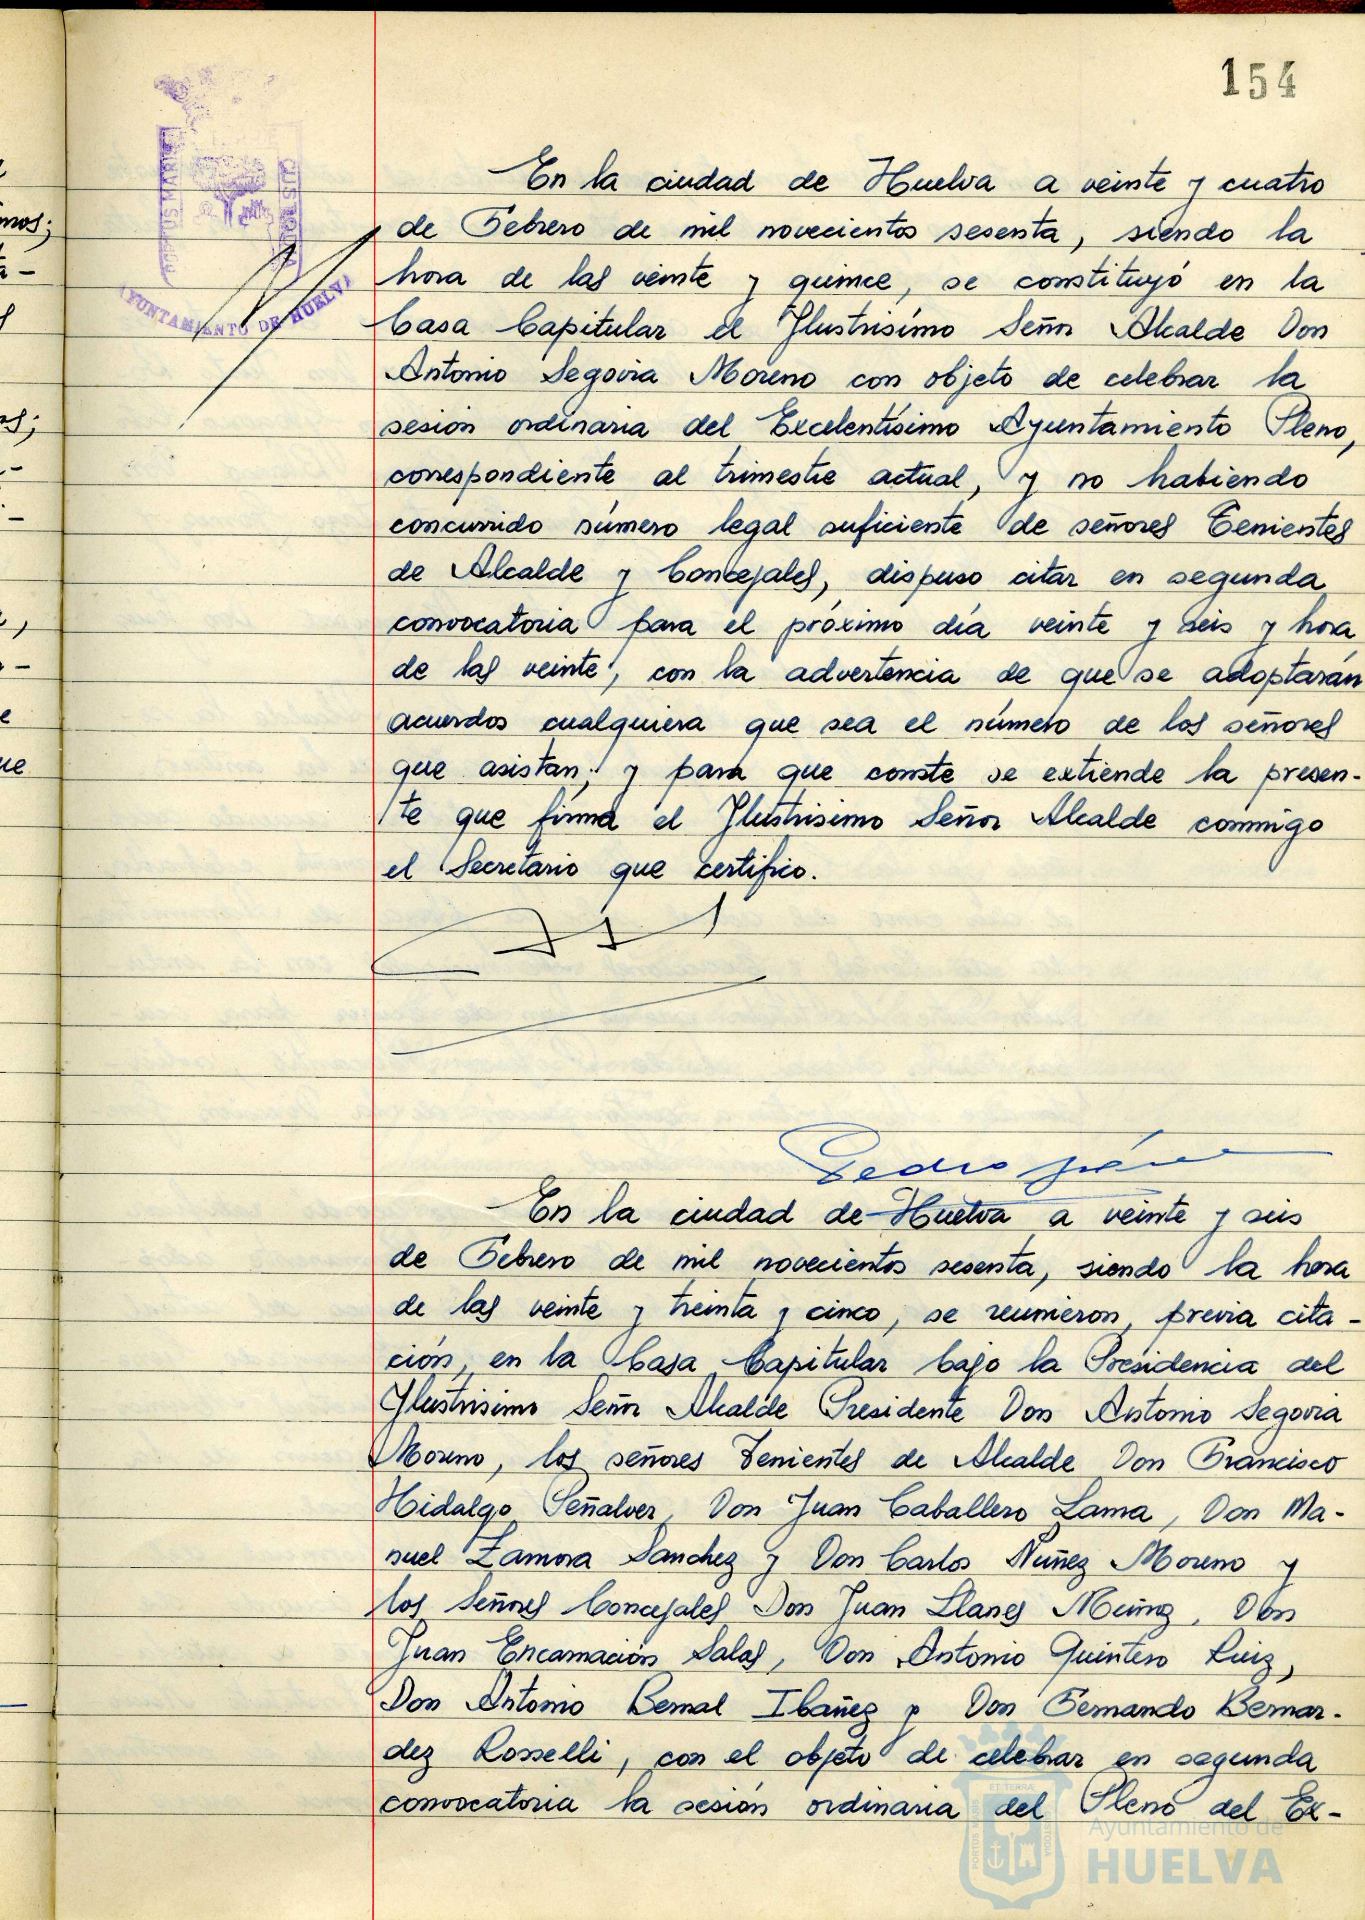 154
PORTUS MARIS
CUSTODIA
AYUNTAMIENTO DE HUELVA
En la ciudad de Huelva a veinte y cuatro
de Febrero de mil novecientos sesenta, siendo la
hora de las veinte y quince, se constituyó en la
Casa Capitular el Ilustrisimo Señor Alcalde Don
Antonio Segovia Moreno con objeto de celebrar la
sesión ordinaria del Excelentísimo Ayuntamiento Pleno,
correspondiente al trimestre actual, y no habiendo
concurrido número legal suficiente de señores Tenientes
de Alcalde y Concejales, dispuso citar en segunda
convocatoria para el próximo día veinte y seis y hora
de las veinte, con la advertencia de que se adoptarán
acuerdos cualquiera que sea el número de los señores
que asistan; y para que conste se extiende la presen-
te que firma el Ilustrisimo Señor Alcalde conmigo
el Secretario que certifico.
Pedro
En la ciudad de Huelva a veinte y seis
de Febrero de mil novecientos sesenta, siendo la hora
de las veinte y treinta y cinco, se reunieron, previa cita-
ción, en la Casa Capitular bajo la Presidencia del
Ilustrisimo Señor Alcalde Presidente Don Antonio Segovia
Moreno, los señores Tenientes de Alcalde Don Francisco
Hidalgo Peñalver, Don Juan Caballero Lama, Don Ma-
nuel Zamora Sanchez y Don Carlos Nuñez Moreno y
los Señores Concejales Don Juan Llanes Muñoz, Don
Juan Encarnación Salas, Don Antonio Quintero Ruiz,
Don Antonio Bernal Ibañez y Don Fernando Bernar-
dez Rosselli, con el objeto de celebrar en segunda
convocatoria la sesión ordinaria del Pleno del Ex-
ET TERRA
PORTUS MARIS
CUSTODIA
Ayuntamiento de
HUELVA